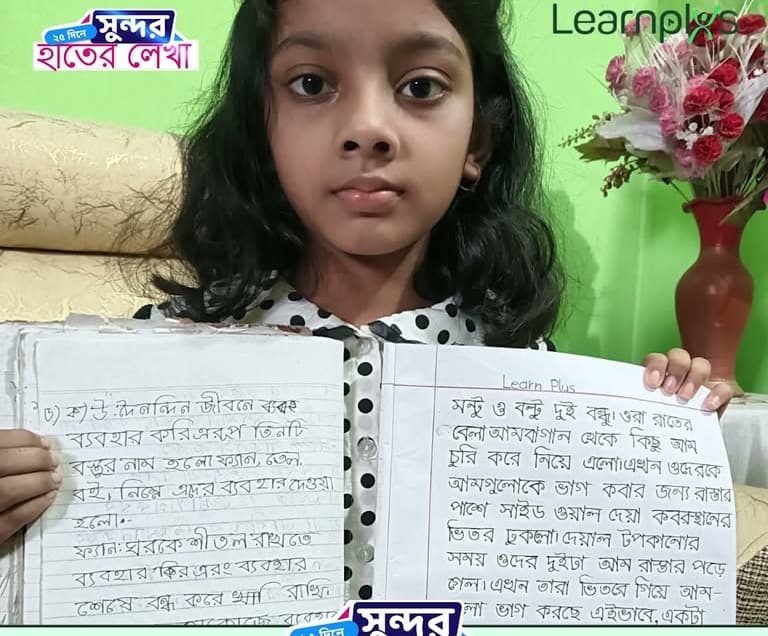 ২৫ দিনে
সুন্দর
হাতের লেখা
Learnplus
৩) ক) উ: দৈনন্দিন জীবনে
ব্যবহার করি এরূপ তিনটি
বস্তুর নাম হলো ফ্যান, তেল,
বই, নিম্নে এদের ব্যবহার দেওয়া
হলো:-
ফ্যান: ঘরকে শীতল রাখতে
ব্যবহার করি এবং ব্যবহার
শেষে বন্ধ করে রাখি
Learn Plus
মন্টু ও বল্টু দুই বন্ধু। ওরা রাতের
বেলা আমবাগান থেকে কিছু আম
চুরি করে নিয়ে এলো। এখন ওদেরকে
আমগুলোকে ভাগ করার জন্য রাস্তার
পাশে সাইড ওয়াল দেয়া কবরস্থানের
ভিতর ঢুকলো। দেয়াল টপকানোর
সময় ওদের দুইটা আম রাস্তায় পড়ে
গেল। এখন তারা ভিতরে গিয়ে আম-
গুলা ভাগ করছে এইভাবে, একটা
২৫ দিনে
সুন্দর